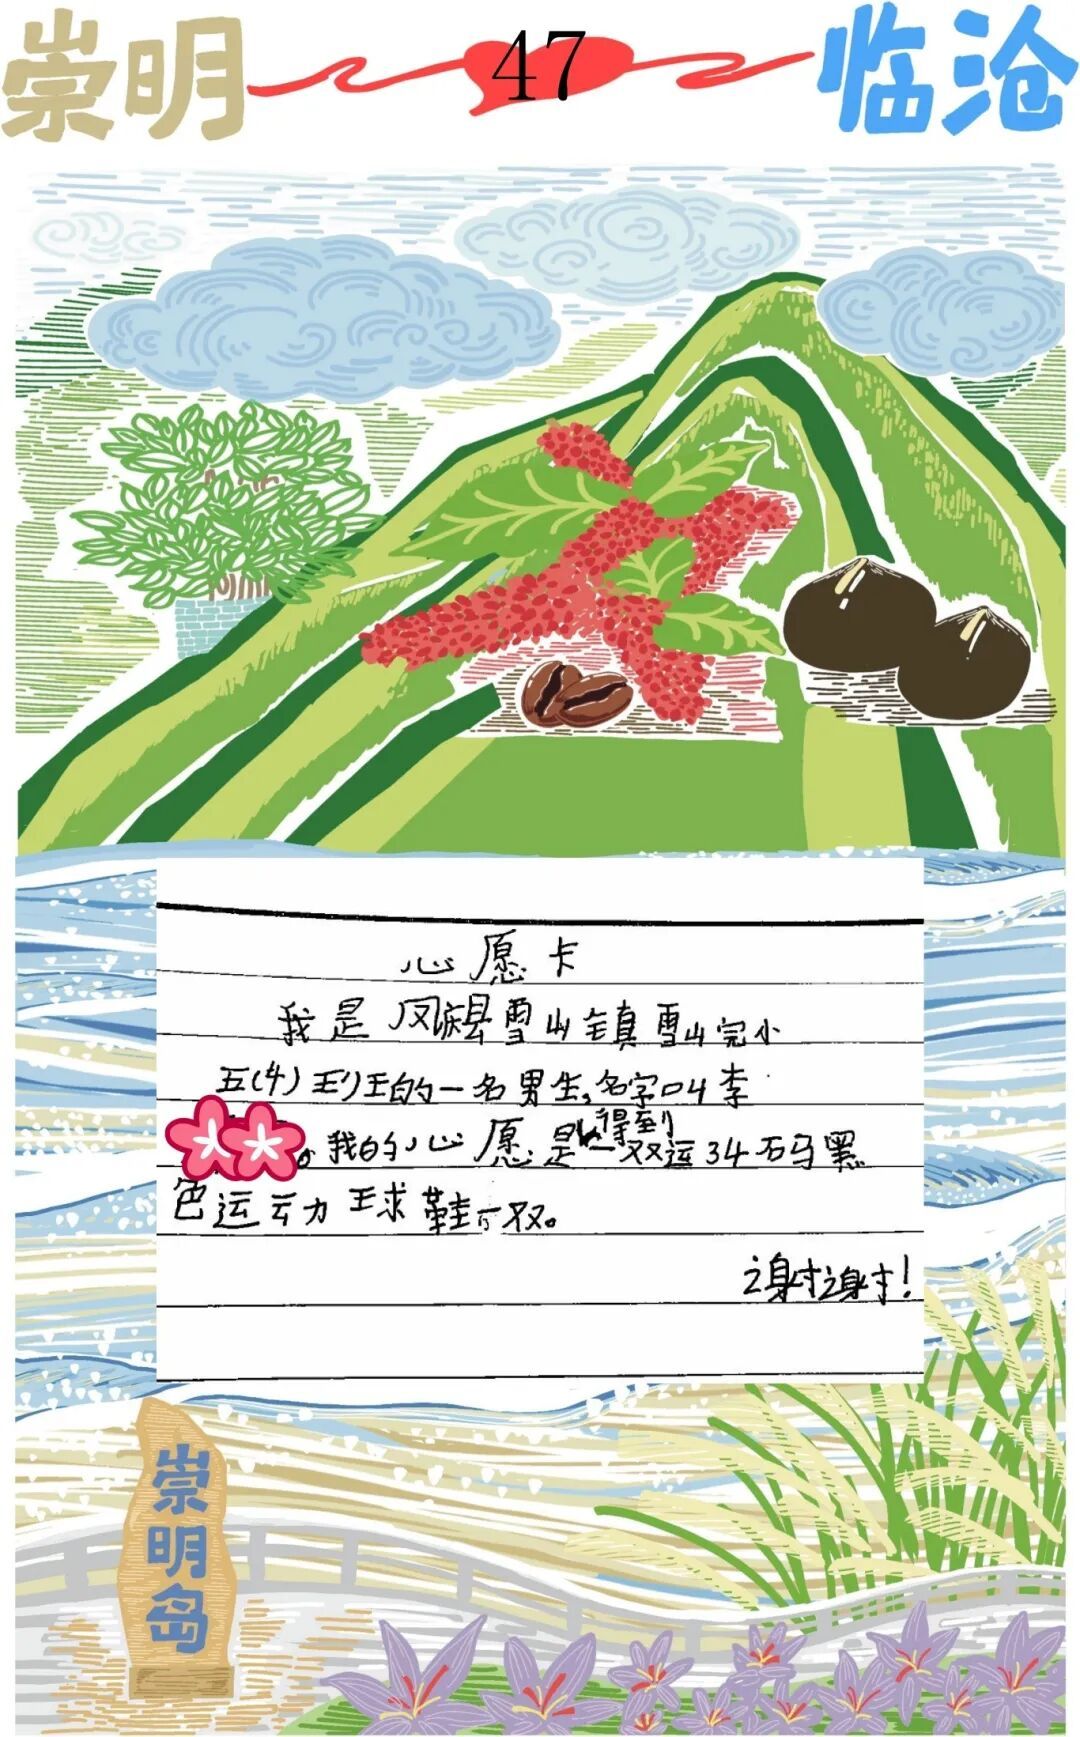 崇明 47 临沧
心愿卡
我是凤庆县雪山镇雪山完小
五(4)班的一名男生,名字叫李
。我的心愿是得到一双运34码黑
色运动球鞋一双。
谢谢!
崇明岛